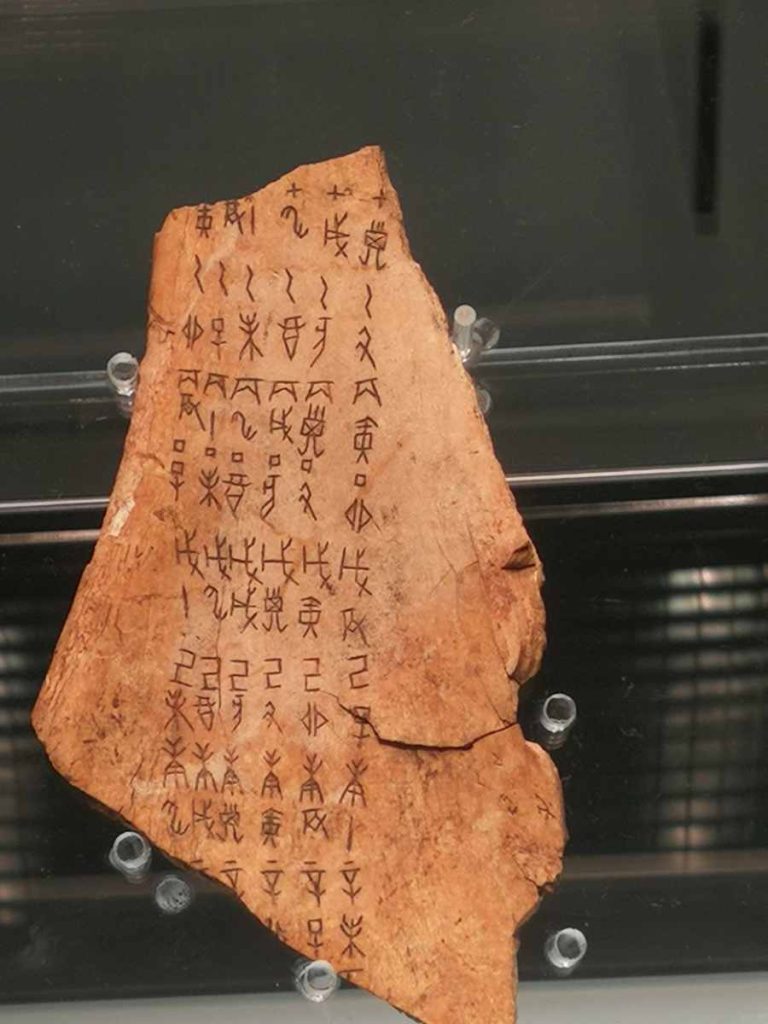 甲子乙丑丙寅丁卯戊辰己巳庚午辛未壬
甲戌乙亥丙子丁丑戊寅己卯庚辰辛巳
甲申乙酉丙戌丁亥戊子己丑庚寅辛卯
午乙未丙申丁酉戊戌己亥庚子辛
辰乙巳丙午丁未戊申己酉庚戌
寅乙卯丙辰丁巳戊午己未庚申